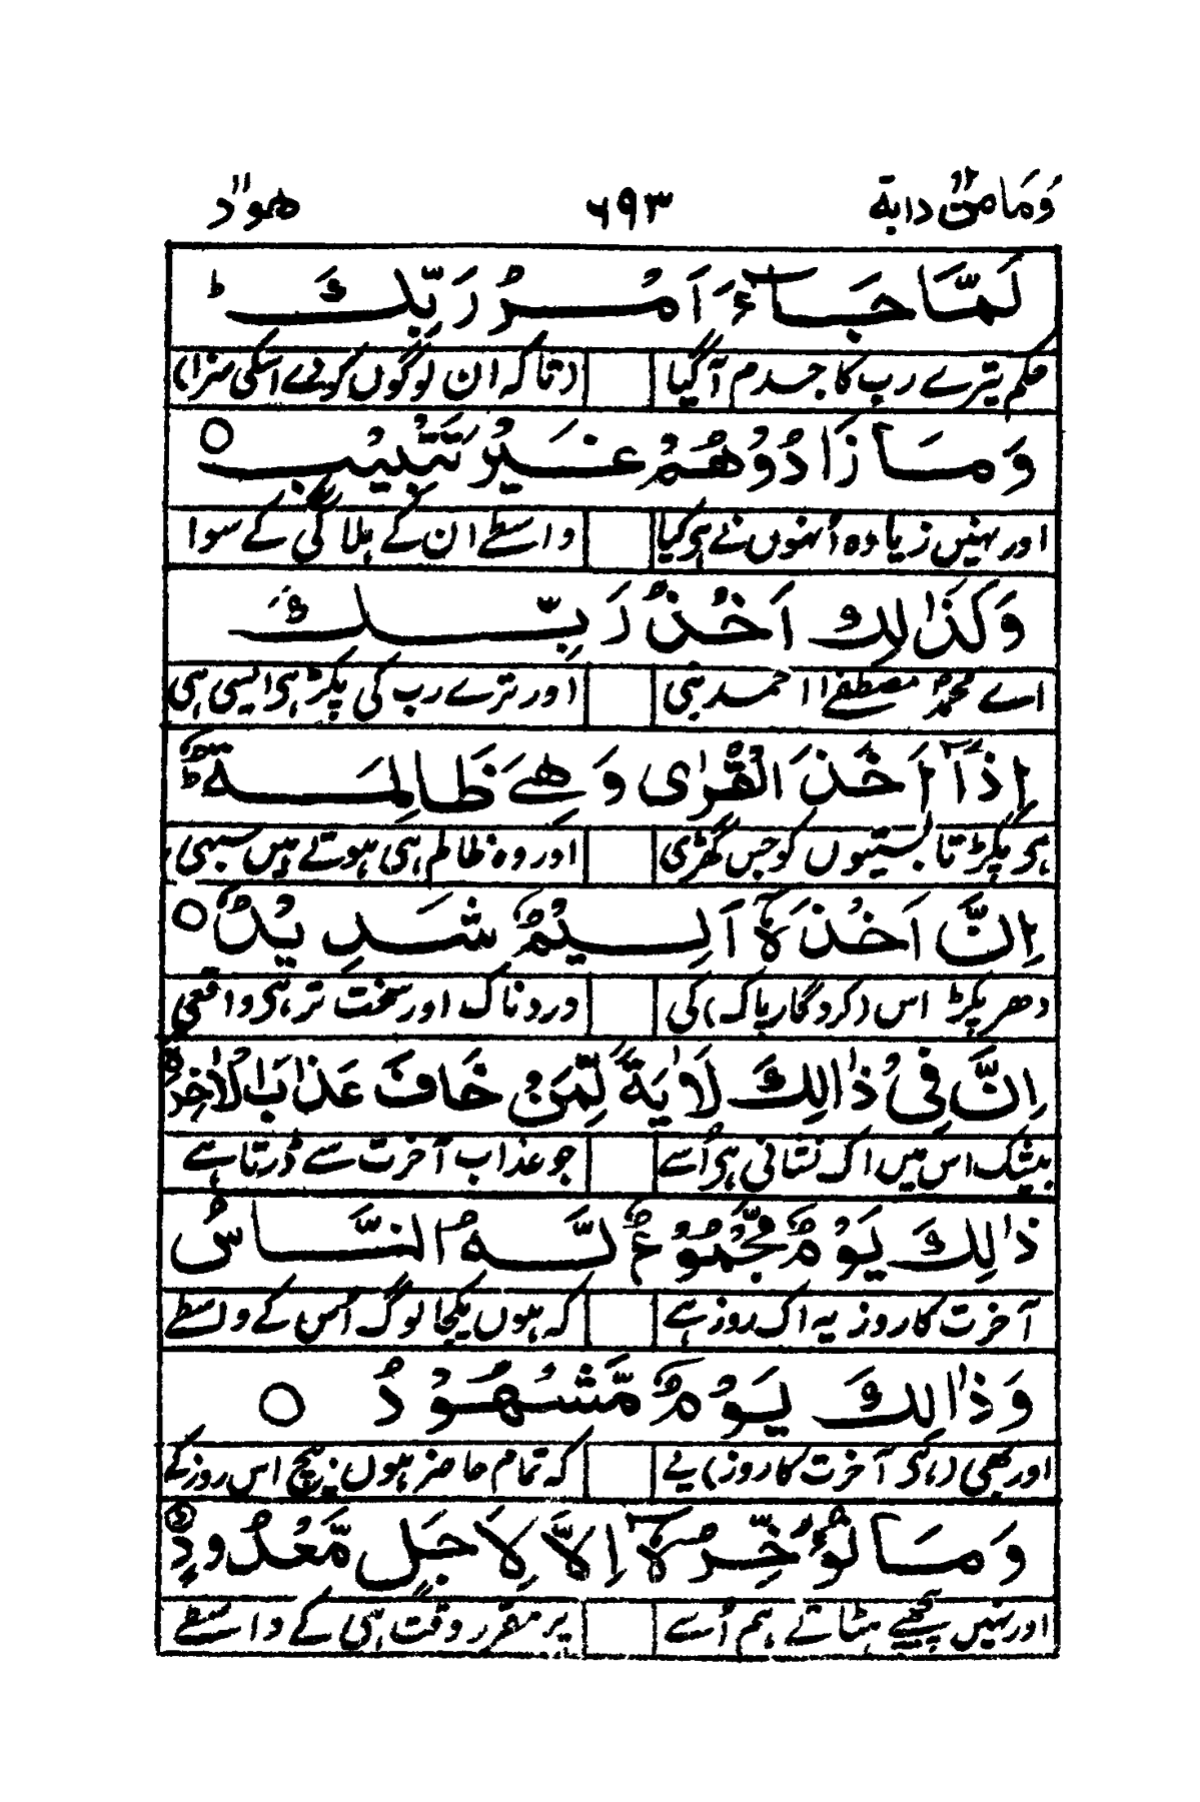 وَمَا مِن دابة ۱۲ ۶۹۳ ھود ۱۱
لَمَّا جَآءَ اَمْرُ رَبِّكَ ط
حکم تیرے رب کا جسدم آ گیا (تاکہ ان لوگوں کو دے اسکی سزا)
وَمَا زَادُوْهُمْ غَيْرَ تَتْبِيْبٍ ○
اور نہیں زیادہ اُنہوں نے ہی کیا واسطے ان کے ہلاکی کے سوا
وَكَذٰلِكَ اَخْذُ رَبِّكَ
اے محمد مصطفےٰ احمد نبی اور ترے رب کی پکڑ ہی ایسی ہی
اِذَآ اَخَذَ الْقُرٰى وَهِيَ ظَالِمَةٌ ط
ہی پکڑتا بستیوں کو جس گھڑی اور وہ ظالم ہی ہوتے ہیں سبھی
اِنَّ اَخْذَهٗٓ اَلِيْمٌ شَدِيْدٌ ○
دھر پکڑ اس (کردگار پاک) کی دردناک اور سخت تر ہی واقعی
اِنَّ فِىْ ذٰلِكَ لَاٰيَةً لِّمَنْ خَافَ عَذَابَ الْاٰخِرَةِ
بیشک اس میں اک نشانی ہی اُسے جو عذاب آخرت سے ڈرتا ہے
ذٰلِكَ يَوْمٌ مَّجْمُوْعٌ لَّهُ النَّاسُ
آخرت کا روز یہ اک روز ہے کہ ہوں یکجا لوگ اُس کے واسطے
وَذٰلِكَ يَوْمٌ مَّشْهُوْدٌ ○
اور بھی (ہی آخرت کا روز) یے کہ تمام حاضر ہوں بیچ اس روز کے
وَمَا نُؤَخِّرُهٗٓ اِلَّا لِاَجَلٍ مَّعْدُوْدٍ
اور نہیں پیچھے ہٹاتے ہم اُسے پر مقرر وقت ہی کے واسطے